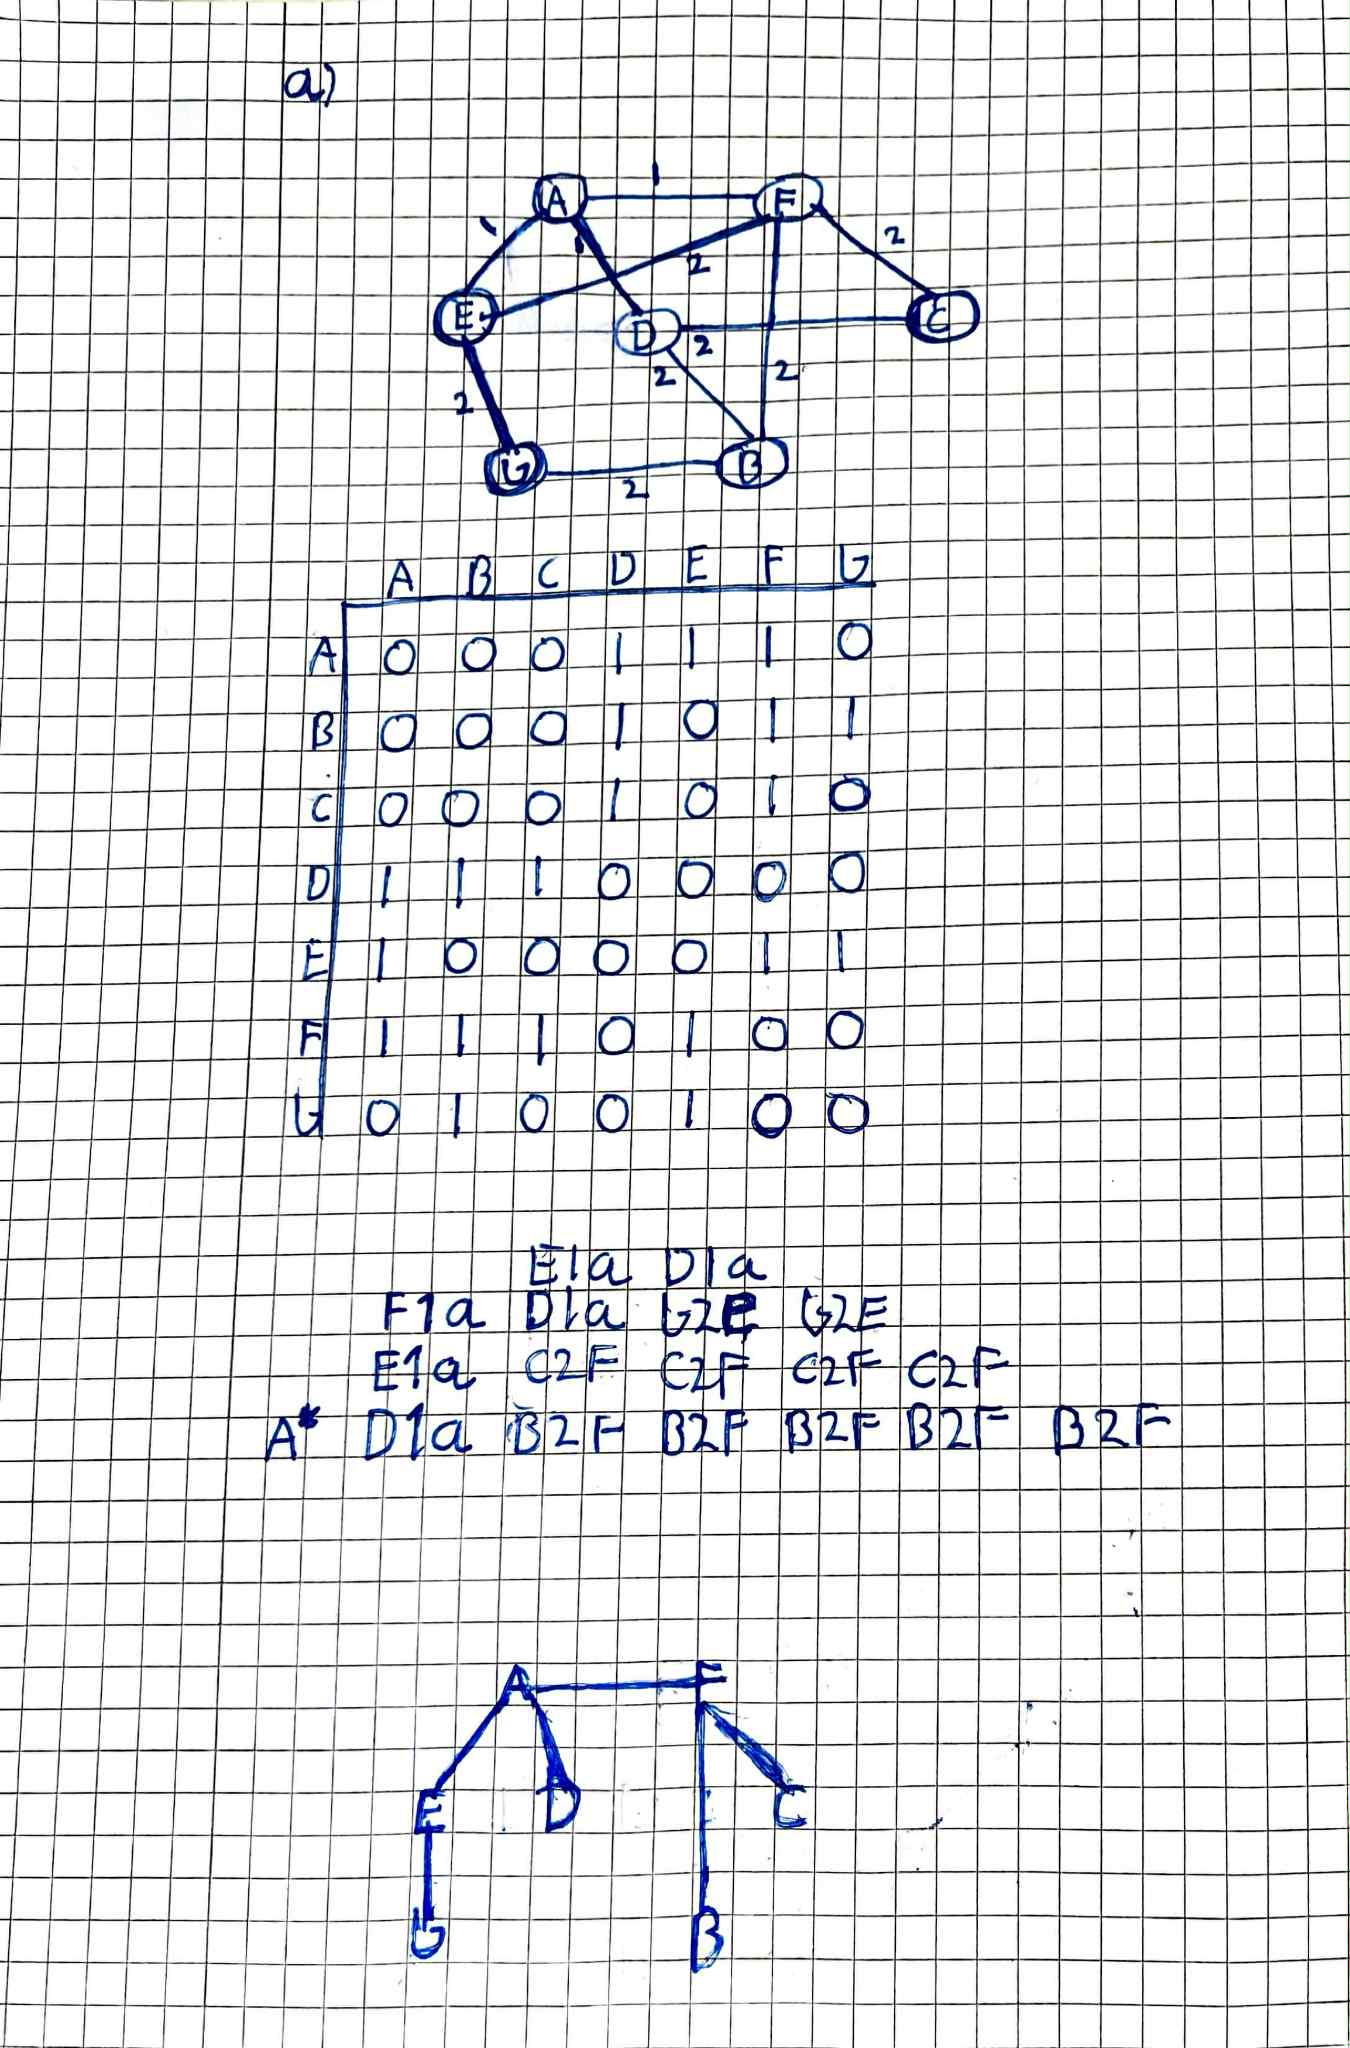 a)
1
A F
2
1
2
E D C
2
2 2
2
G B
2
A B C D E F G
A 0 0 0 1 1 1 0
B 0 0 0 1 0 1 1
C 0 0 0 1 0 1 0
D 1 1 1 0 0 0 0
E 1 0 0 0 0 1 1
F 1 1 1 0 1 0 0
G 0 1 0 0 1 0 0
E1a D1a
F1a D1a G2E G2E
E1a C2F C2F C2F C2F
A* D1a B2F B2F B2F B2F B2F
A F
E D C
G B